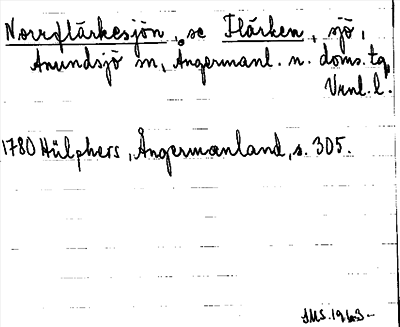 Norrflärkesjön, se Flärken, sjö,
Anundsjö sn, Ångermanl. n. doms. tg,
Vnl. l.
1780 Hülphers, Ångermanland, s. 305.